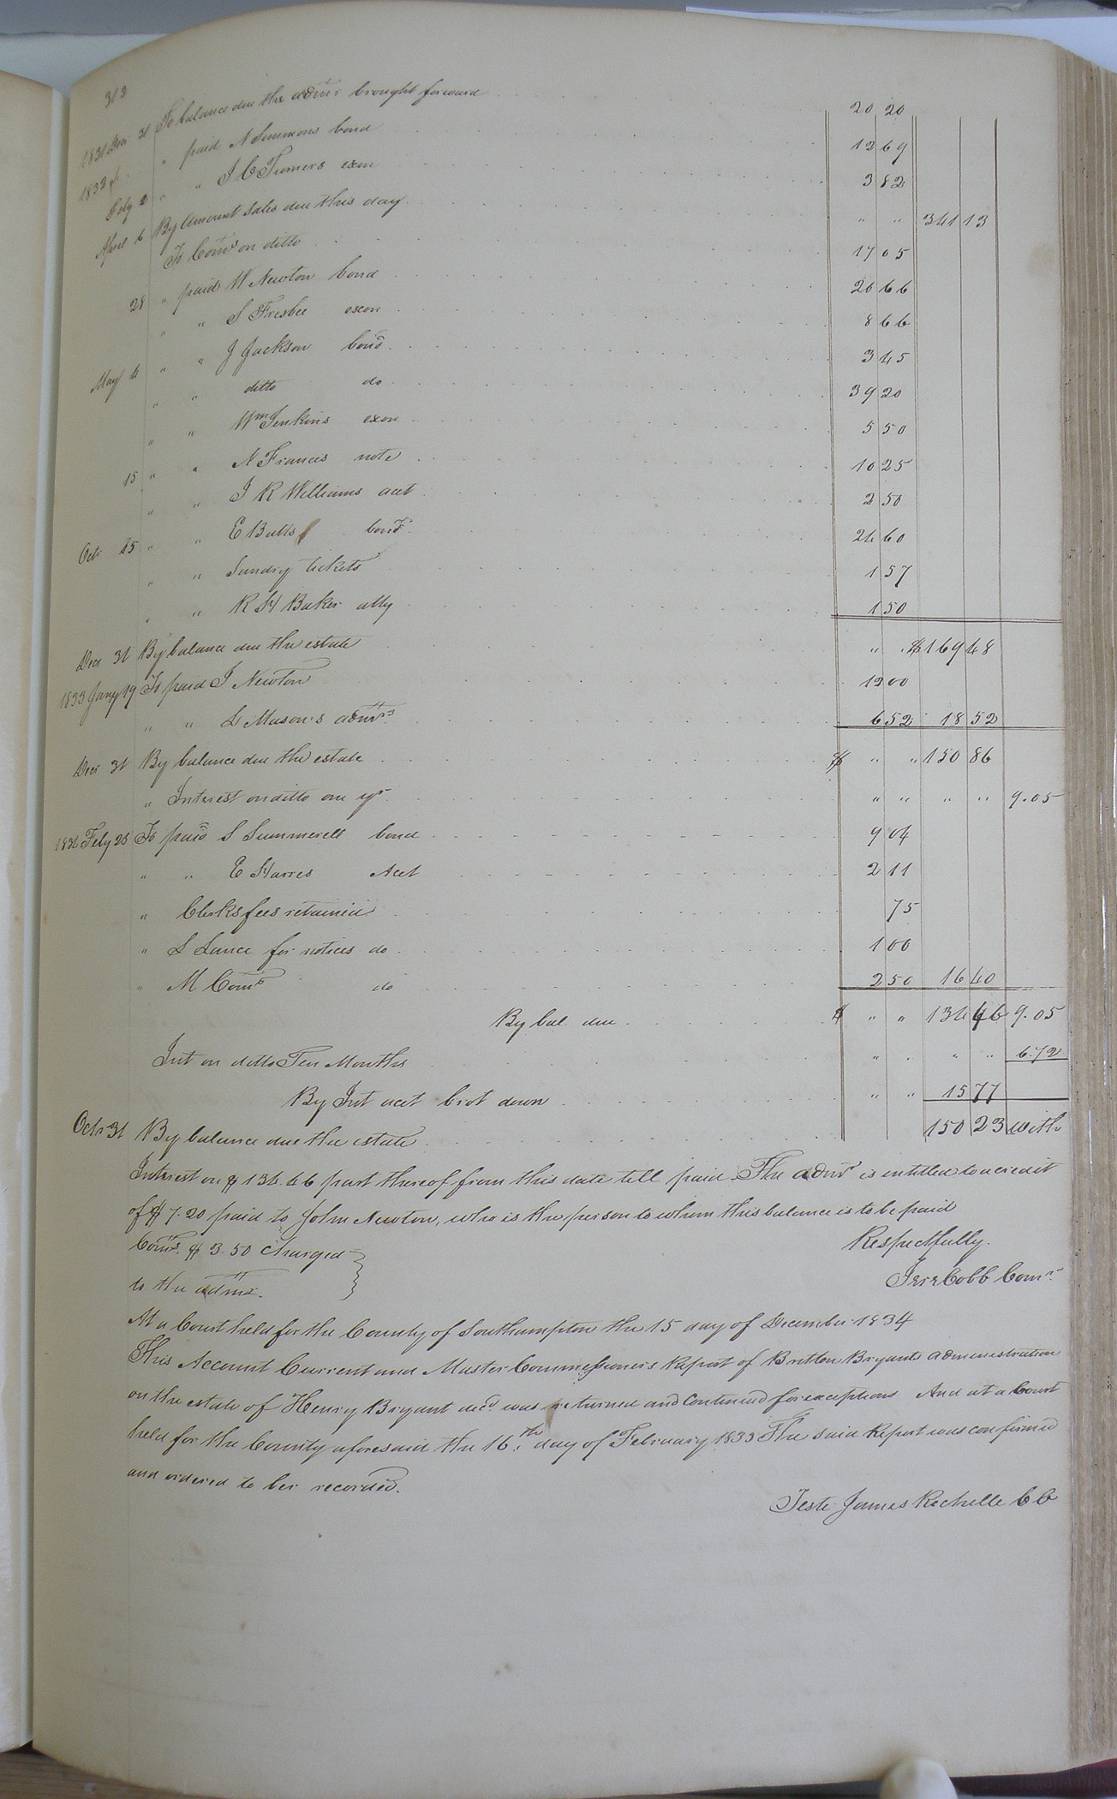 313
1831 Decr 31 To balance due the admr brought forward 20 20
1832 " paid N Simmons bond 12 69
Feby 2 " " J C Turners exon 3 82
April 6 By Amount Sales due this day " " 341 13
To Coms on ditto 17 05
28 " paid W Newton bond 20 66
" " S Frisbee exon 8 66
" " J Jackson bond 3 45
May 4 " " ditto do 39 20
" " Wm Jenkins exon 5 50
15 " " N Francis note 10 25
" " J R Williams acct 2 50
Octr 25 " " E Butts bond 24 60
" " Sundry tickets 1 57
" " R H Baker atty 1 50
Decr 31 By balance due the estate " " $169 48
1833 Jany 19 To paid J Newton 12 00
" " L Mason's admrs 6 52 18 52
Decr 31 By balance due the estate $ " " 150 86
" Interest on ditto one yr " " " " 9.05
1834 Feby 23 To paid S Summerell bond 9 04
" " E Harris Acct 2 11
" Clerks fees retained 75
" S Lance for notices do 1 00
" M Coms do 2 50 16 40
By bal due $ " " 134 46 9.05
Int on ditto Ten Months " " " " 6.72
By Int acct brot down " " 15 77
Octr 31 By balance due the estate 150 23 with
Interest on $134.46 part thereof from this date till paid. The admr is entitled to a credit
of $7.20 paid to John Newton, who is the person to whom this balance is to be paid
Coms. $3.50 charged
to the admr.
Respectfully.
Jer Cobb Comr
At a Court held for the County of Southampton the 15 day of December 1834
This Account Current and Master Commissioners Report of Britton Bryants administration
on the estate of Henry Bryant decd was returned and Continued for exceptions And at a Court
held for the County aforesaid the 16th day of February 1835 The said Report was confirmed
and ordered to be recorded.
Teste James Rochelle CC